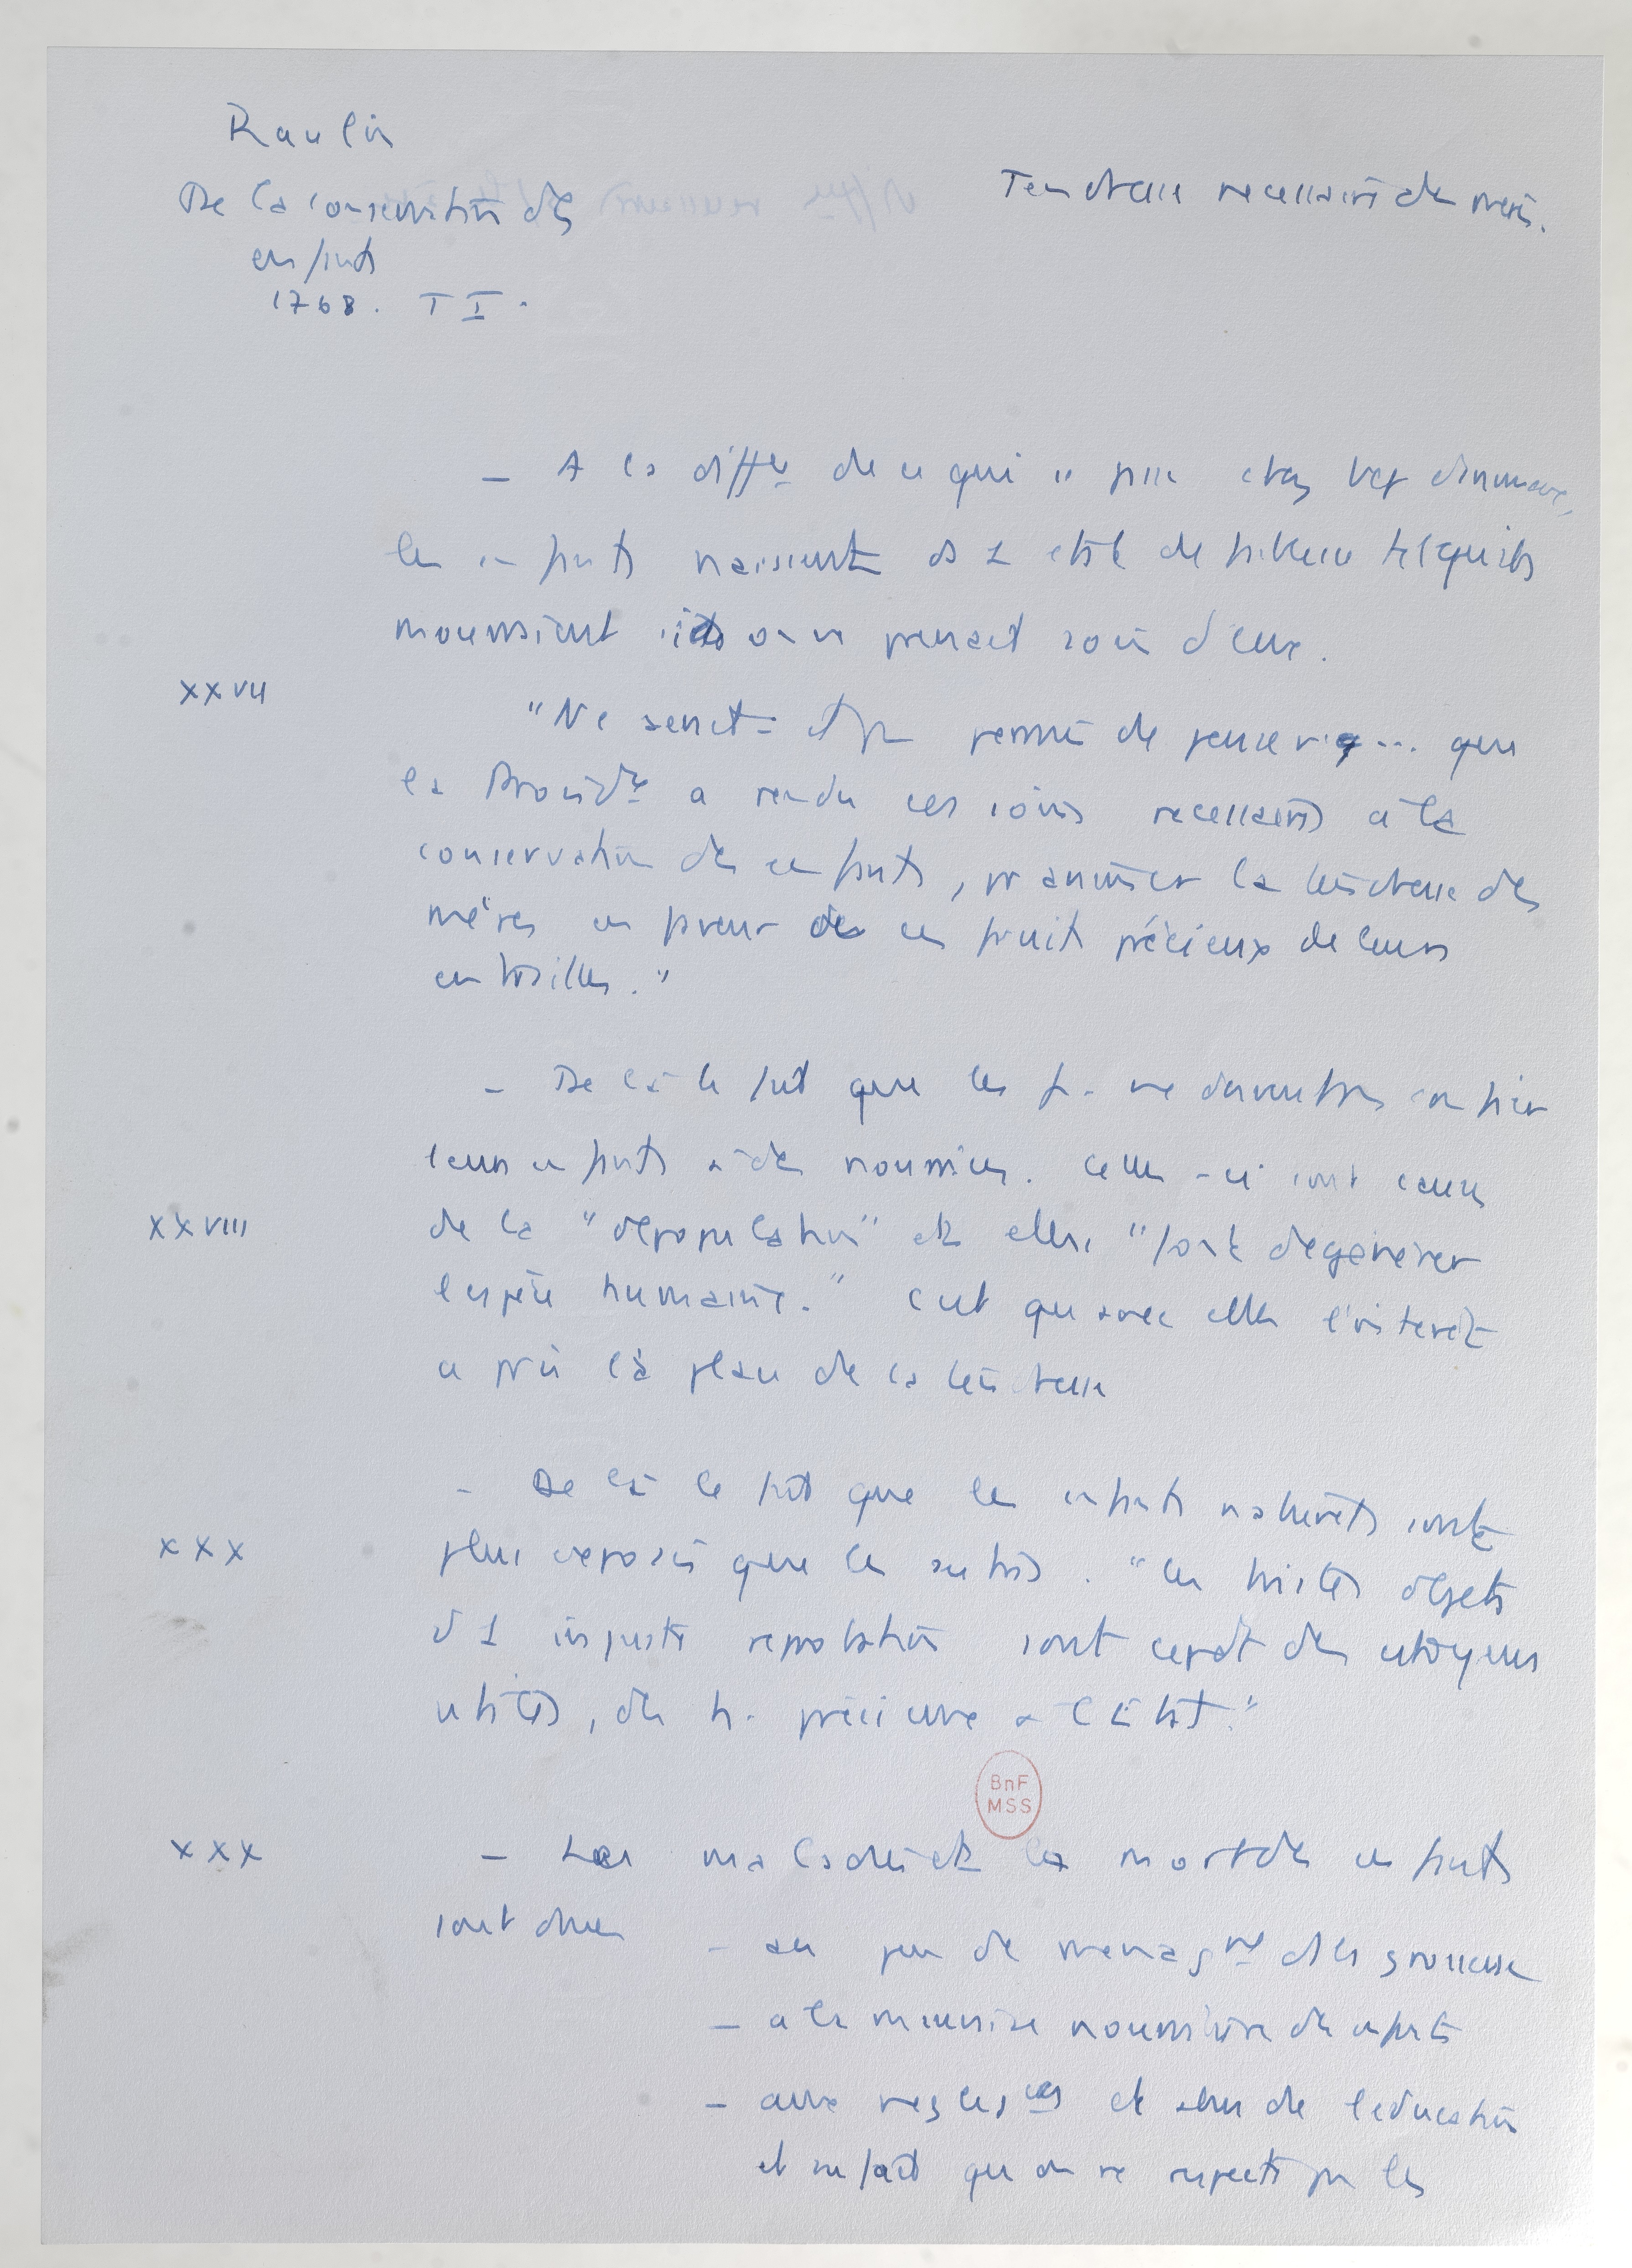 Raulin
De la conservation des
enfants
1768. T I.
Tendresse necessaire des mères.
– A la diffce de ce qui se passe chez les animaux,
les enfants naissent ds 1 état de faiblesse tel qu'ils
mourraient si on ne prenait soin d'eux.
XXVII
"Ne serait-il pas permis de penser ... que
la Providce a rendu ces soins necessaires à la
conservation des enfants, pr animer la tendresse des
mères en faveur de ces fruits précieux de leurs
entrailles."
– De là le fait que les f. ne doivent pas confier
leurs enfants à des nourrices. Celles-ci sont cause
XXVIII
de la "dépopulation" et elles "font dégénérer
l'espèce humaine." C'est qu'avec elles l'intérêt
a pris la place de la tendresse
– De là le fait que les enfants naturels sont
XXX
plus exposés que les autres. "Ces tristes objets
d'1 injuste réprobation sont cepdt des citoyens
utiles, des h. précieux à l'Etat."
BnF
MSS
XXX
– Les maladies et la mort des enfants
sont dues
– au peu de menagmt ds les grossesses
– à la mauvaise nourriture des enfants
– aux negligces et abus de l'education
et au fait qu'on ne respecte pas les